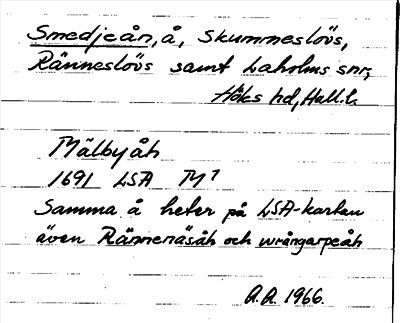 Smedjeån, å, Skummeslövs,
Ränneslövs samt Laholms snr,
Höks hd, Hall. l.
Mälbyåh
1691 LSA M 7
Samma å heter på LSA-kartan
även Rännenäsåh och wrångarpeåh
A.A. 1966.